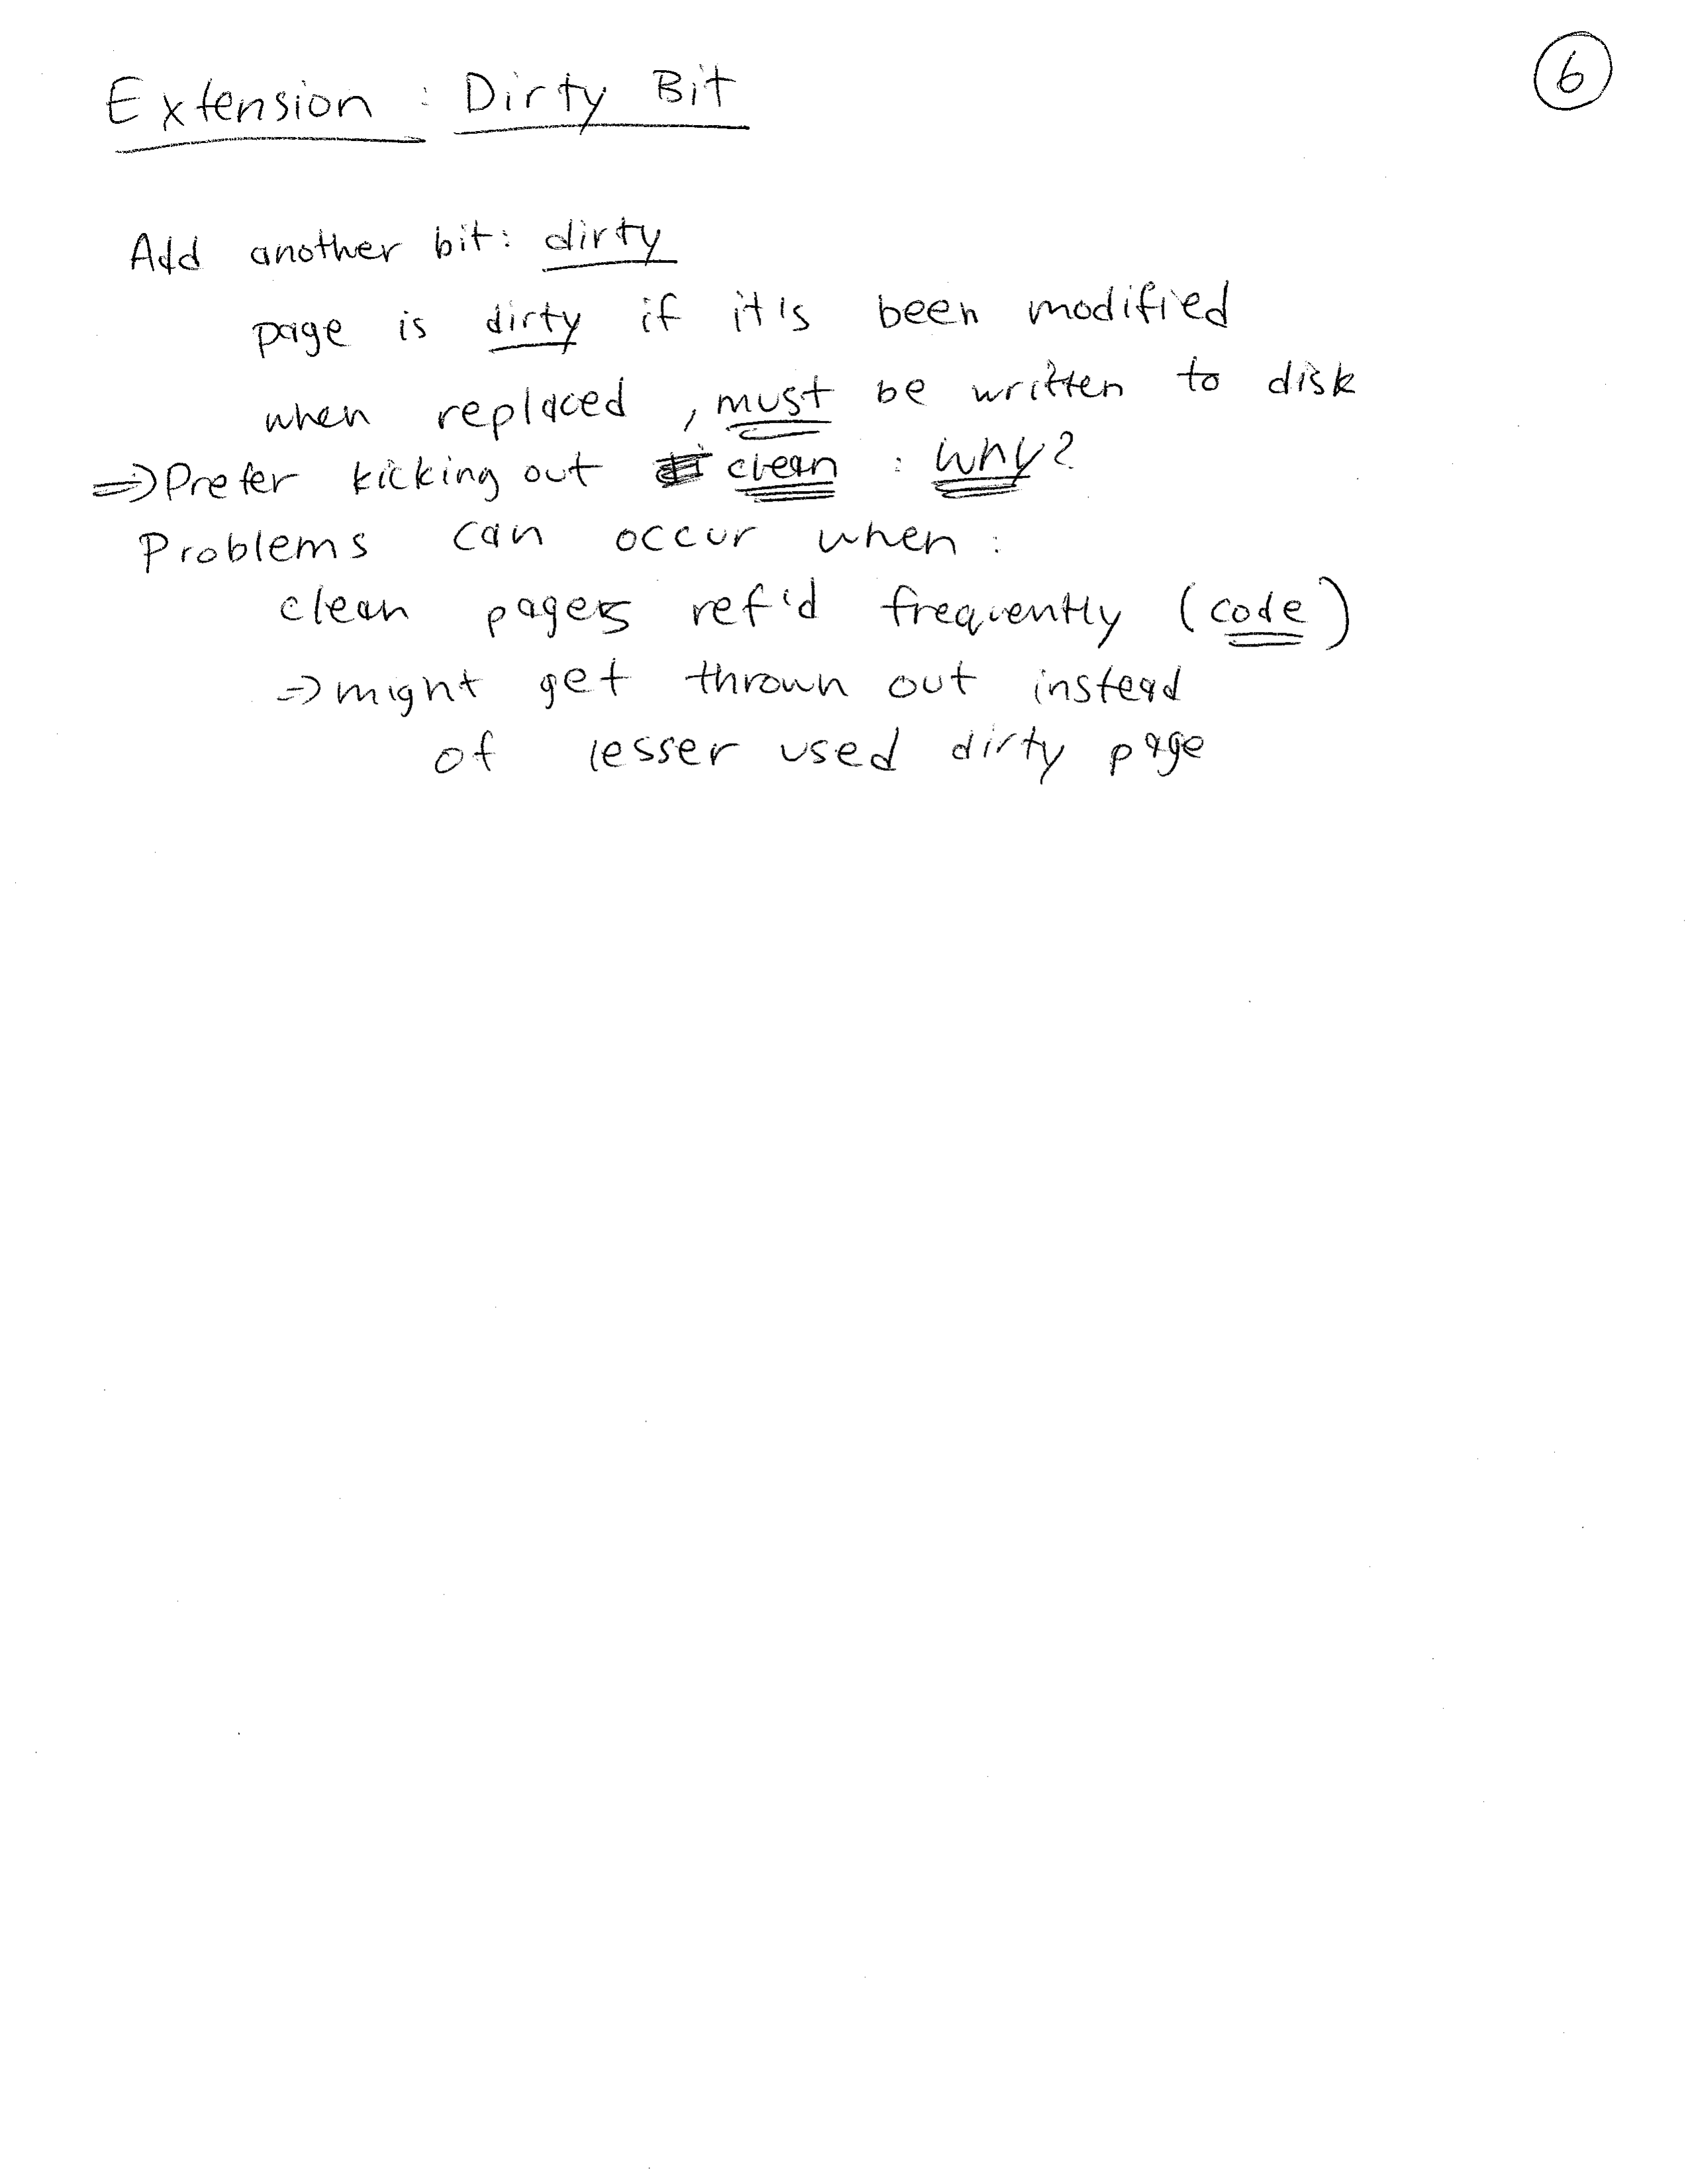 Extension : Dirty Bit
6
Add another bit: dirty
page is dirty if it's been modified
when replaced, must be written to disk
=> Prefer kicking out clean : why?
Problems can occur when:
clean pages ref'd frequently (code)
=> might get thrown out instead
of lesser used dirty page